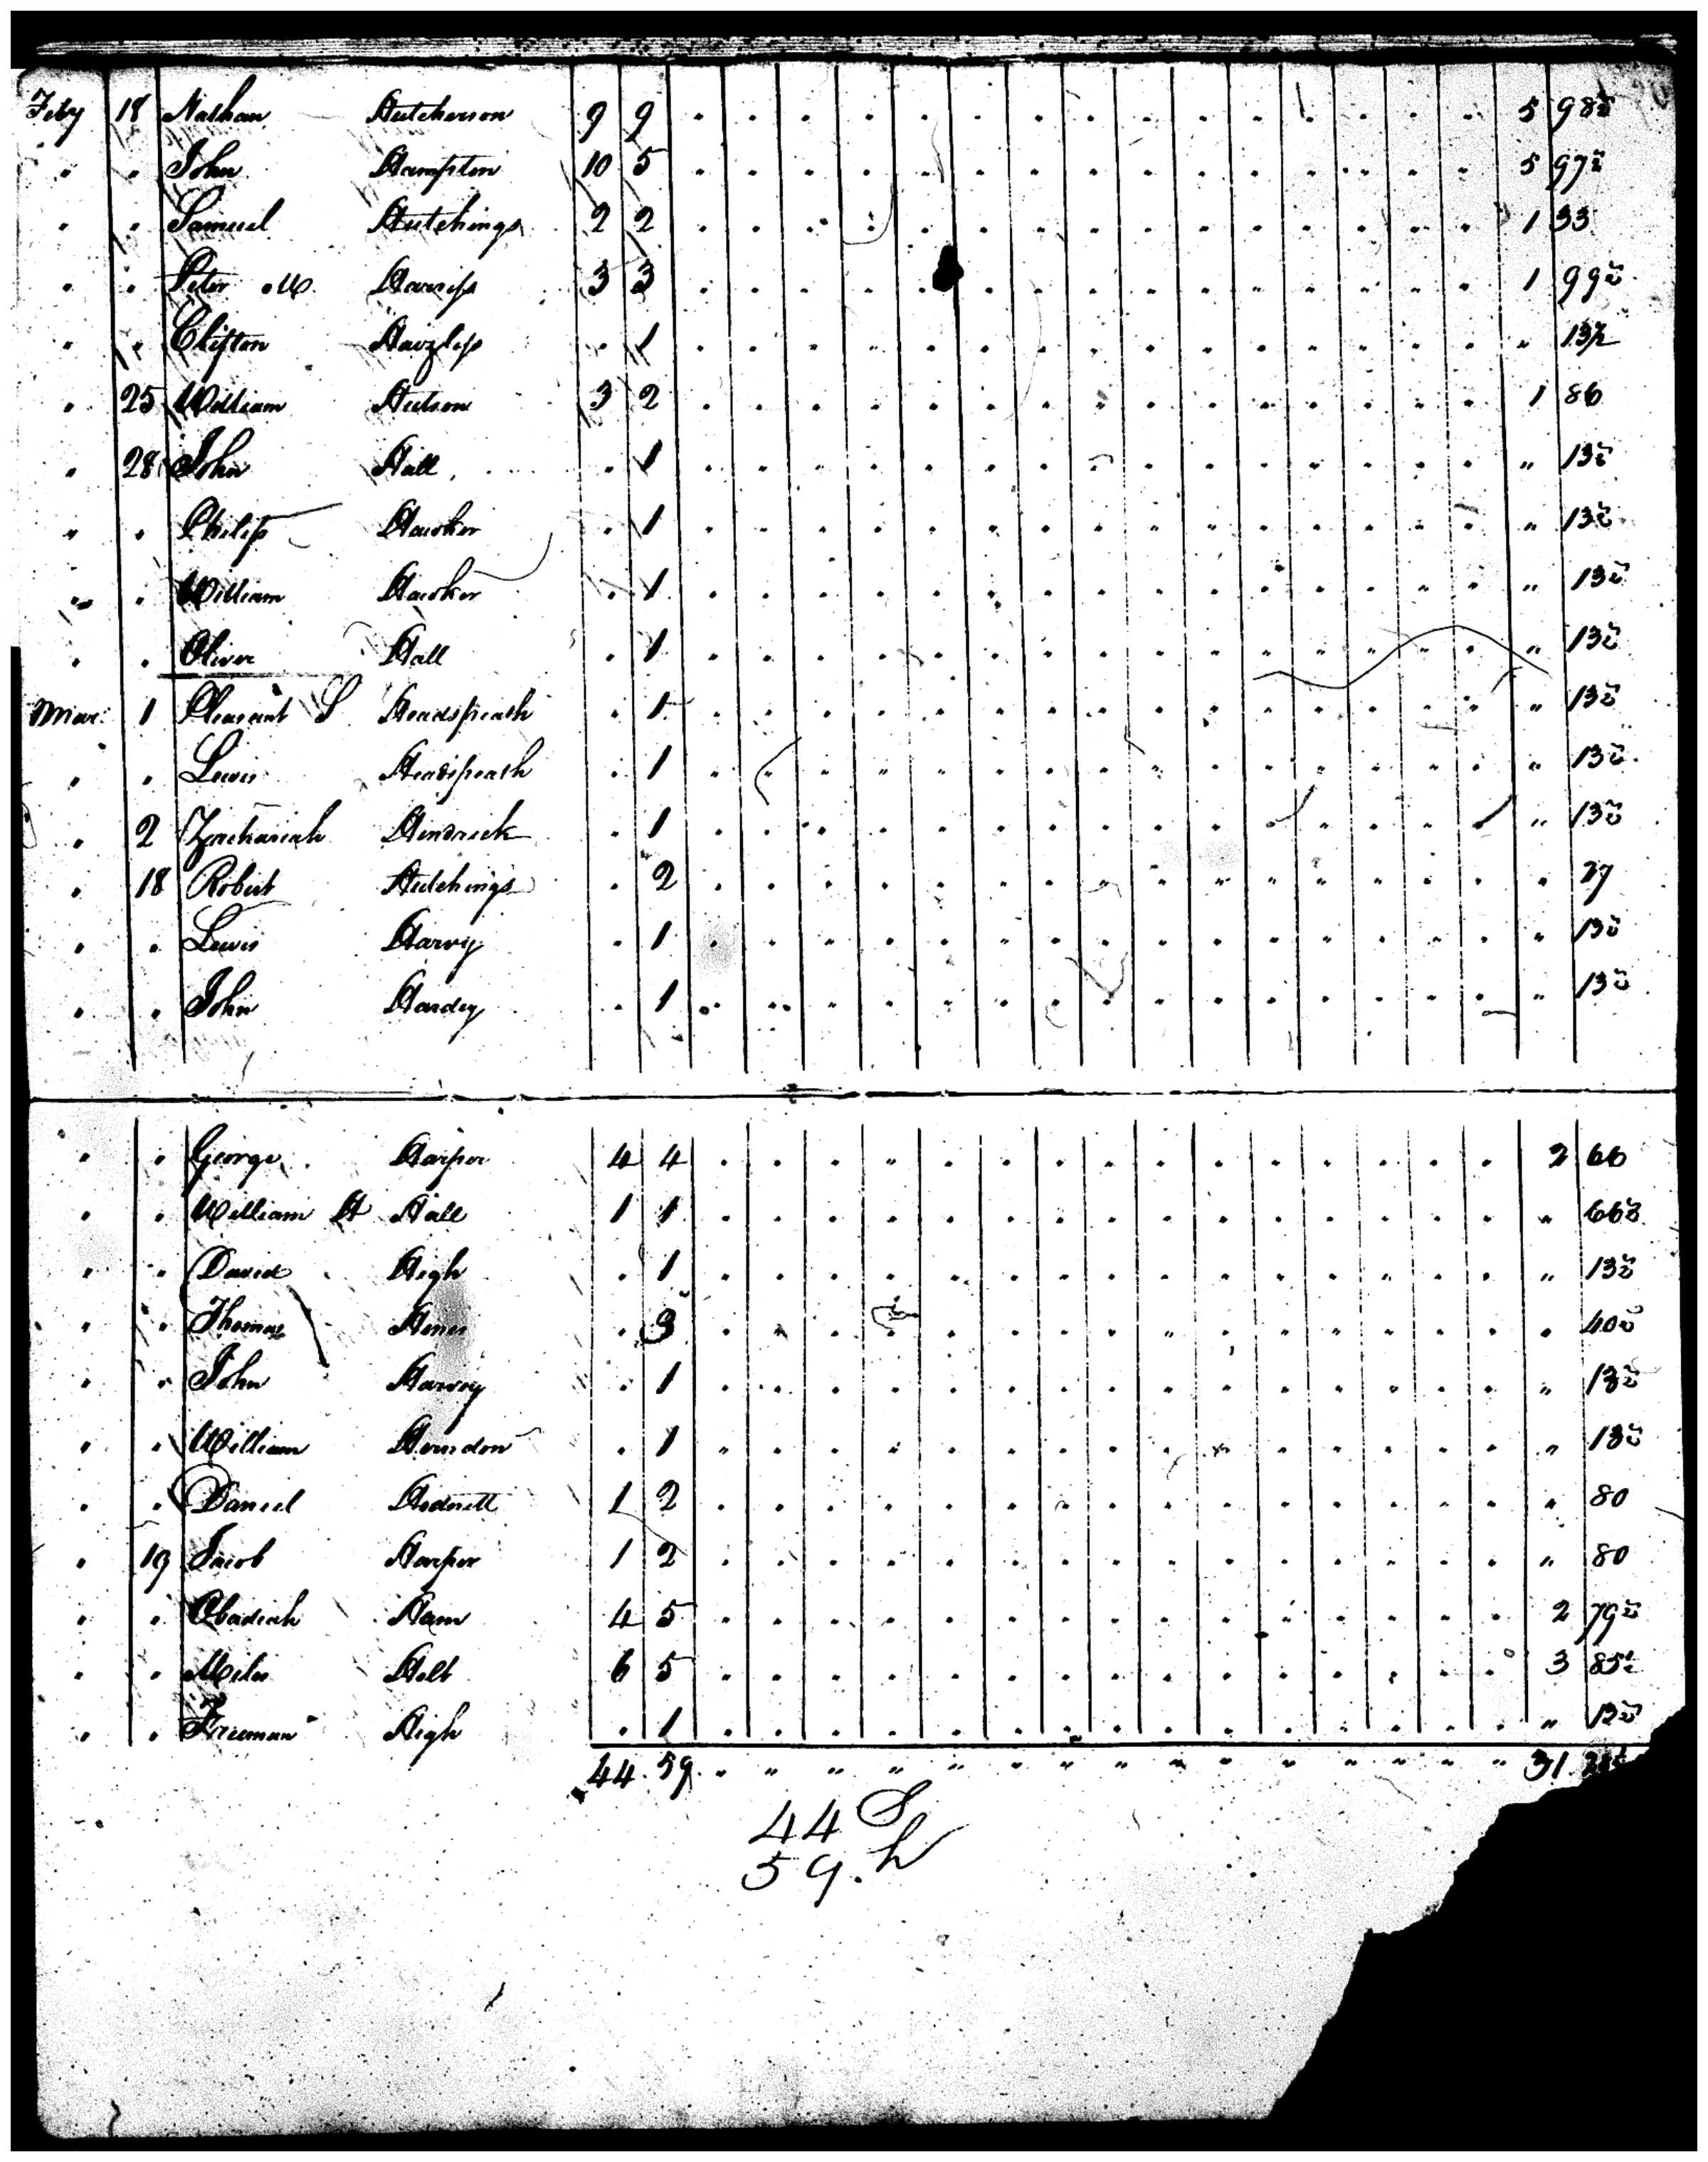 Feby 18 Nathan Hutcherson 9 9 " " " " " " " " " " " " " " " 5 98½
" " John Hampton 10 5 " " " " " " " " " " " " " " " 5 97½
" " Samuel Hutchings 2 2 " " " " " " " " " " " " " " " 1 33
" " Peter M Harriss 3 3 " " " " " " " " " " " " " " " 1 99½
" " Clifton Haizlip " 1 " " " " " " " " " " " " " " " " 13½
" 25 William Hutson 3 2 " " " " " " " " " " " " " " " 1 86
" 28 John Hall " 1 " " " " " " " " " " " " " " " " 13½
" " Philip Hawker " 1 " " " " " " " " " " " " " " " " 13½
" " William Hawker " 1 " " " " " " " " " " " " " " " " 13½
" " Oliver Hall " 1 " " " " " " " " " " " " " " " " 13½
Mar 1 Pleasant S Headspeath " 1 " " " " " " " " " " " " " " " " 13½
" " Lewis Headspeath " 1 " " " " " " " " " " " " " " " " 13½
" 2 Zachariah Hendrick " 1 " " " " " " " " " " " " " " " " 13½
" 18 Robert Hutchings " 2 " " " " " " " " " " " " " " " " 27
" " Lewis Harvy " 1 " " " " " " " " " " " " " " " " 13½
" " John Hardey " 1 " " " " " " " " " " " " " " " " 13½
" " George Harper 4 4 " " " " " " " " " " " " " " " 2 66
" " William H Hall 1 1 " " " " " " " " " " " " " " " " 66½
" " David High " 1 " " " " " " " " " " " " " " " " 13½
" " Thomas " 3 " " " " " " " " " " " " " " " " 40½
" " John Harvey " 1 " " " " " " " " " " " " " " " " 13½
" " William Herndon " 1 " " " " " " " " " " " " " " " " 13½
" " Daniel Hodnett 1 2 " " " " " " " " " " " " " " " " 80
" 19 Jacob Harper 1 2 " " " " " " " " " " " " " " " " 80
" " Obadiah Ham 4 5 " " " " " " " " " " " " " " " 2 79½
" " Miles Holt 6 5 " " " " " " " " " " " " " " " 3 85½
" " Freeman High " 1 " " " " " " " " " " " " " " " " 13½
44. 59. " " " " " " " " " " " " " " " 31.
44 S
59. h